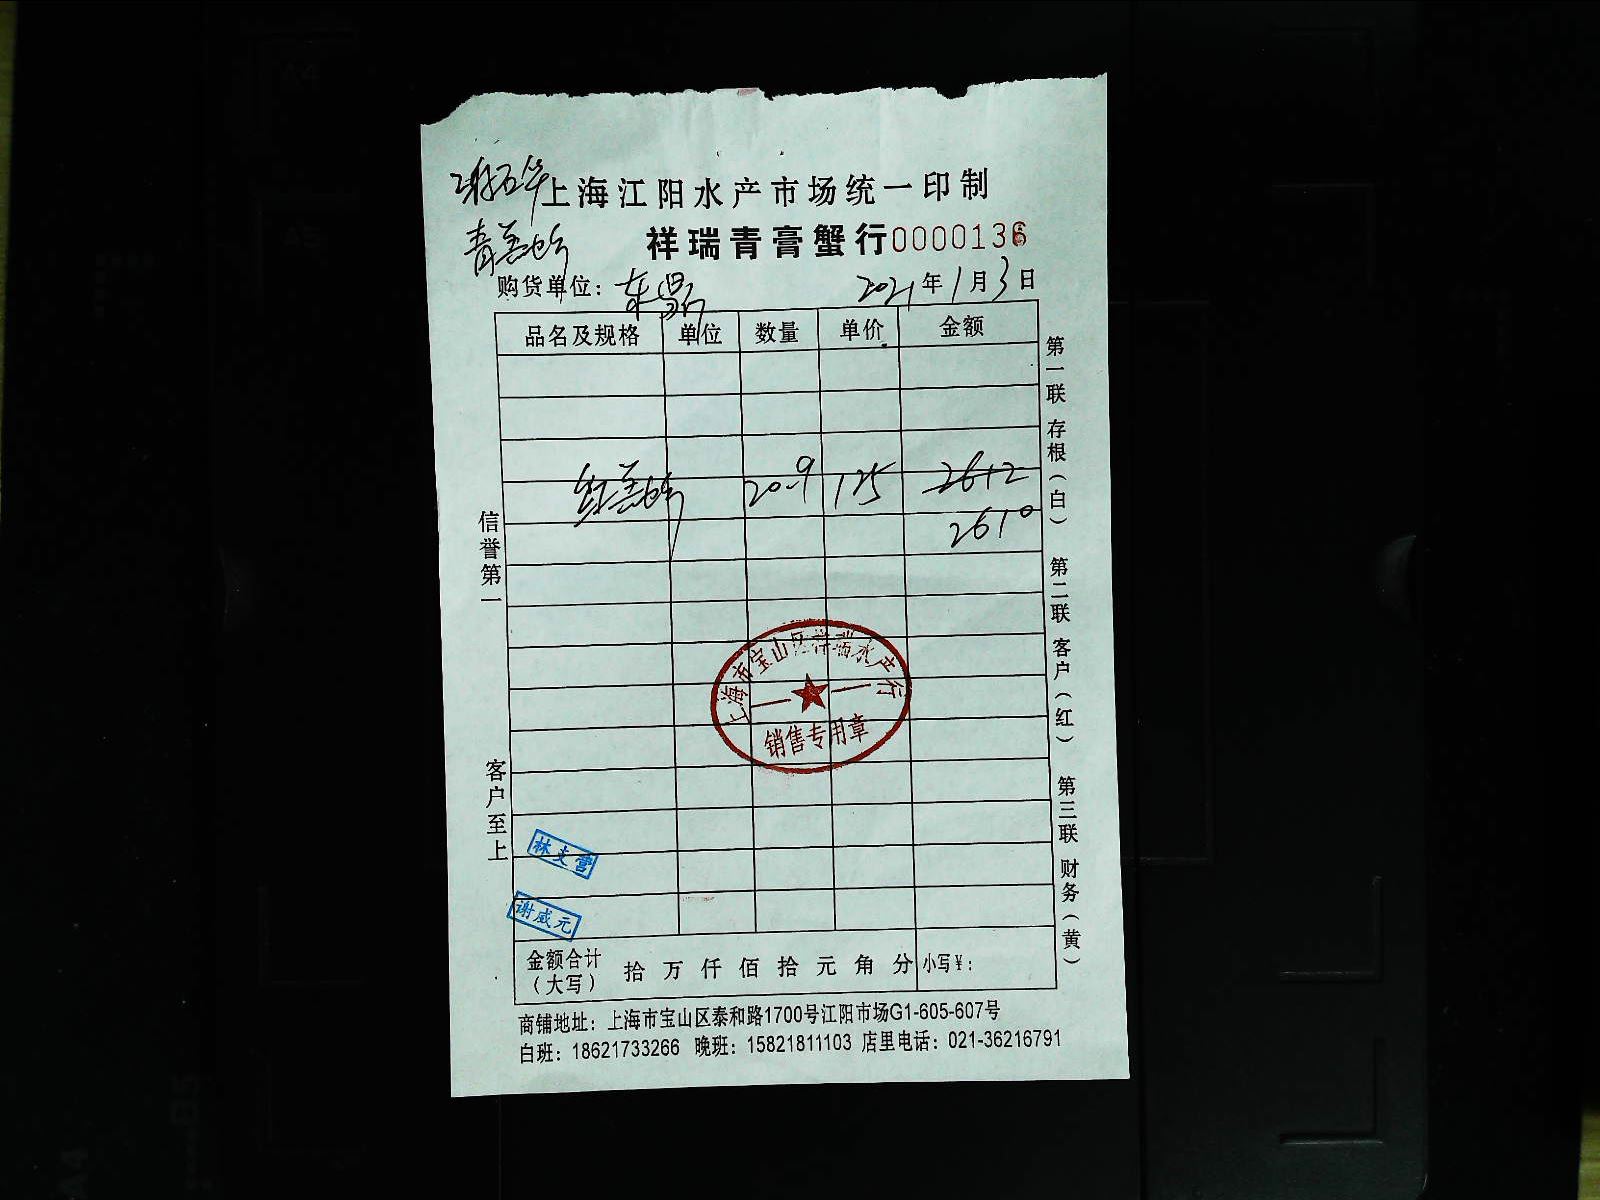 上海江阳水产市场统一印制
祥瑞青膏蟹行0000136
购货单位：东昌
2021年1月3日
品名及规格 单位 数量 单价 金额
20.9 125 2612
2610
信誉第一
客户至上
第一联 存根（白） 第二联 客户（红） 第三联 财务（黄）
上海市宝山区祥瑞水产行
销售专用章
林支营
谢咸元
金额合计（大写） 拾 万 仟 佰 拾 元 角 分 小写¥：
商铺地址：上海市宝山区泰和路1700号江阳市场G1-605-607号
白班：18621733266 晚班：15821811103 店里电话：021-36216791